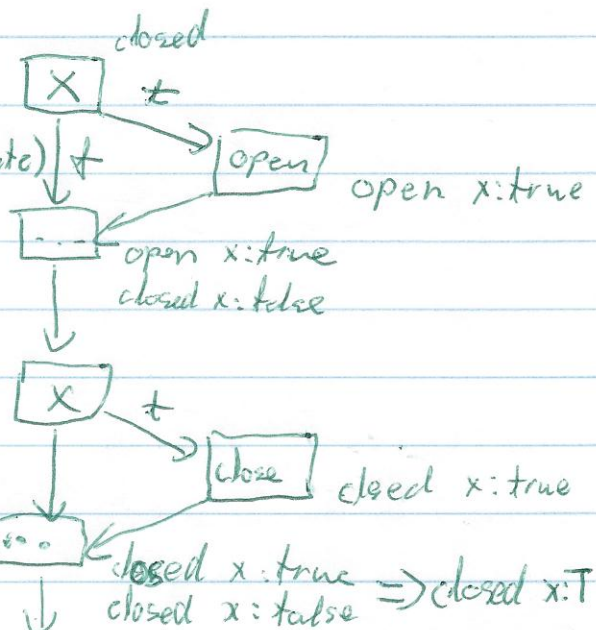 closed
X t
te) f
open
open x:true
.....
open x:true
closed x:false
X t
close
closed x:true
...
closed x:true
closed x:false => closed x:T